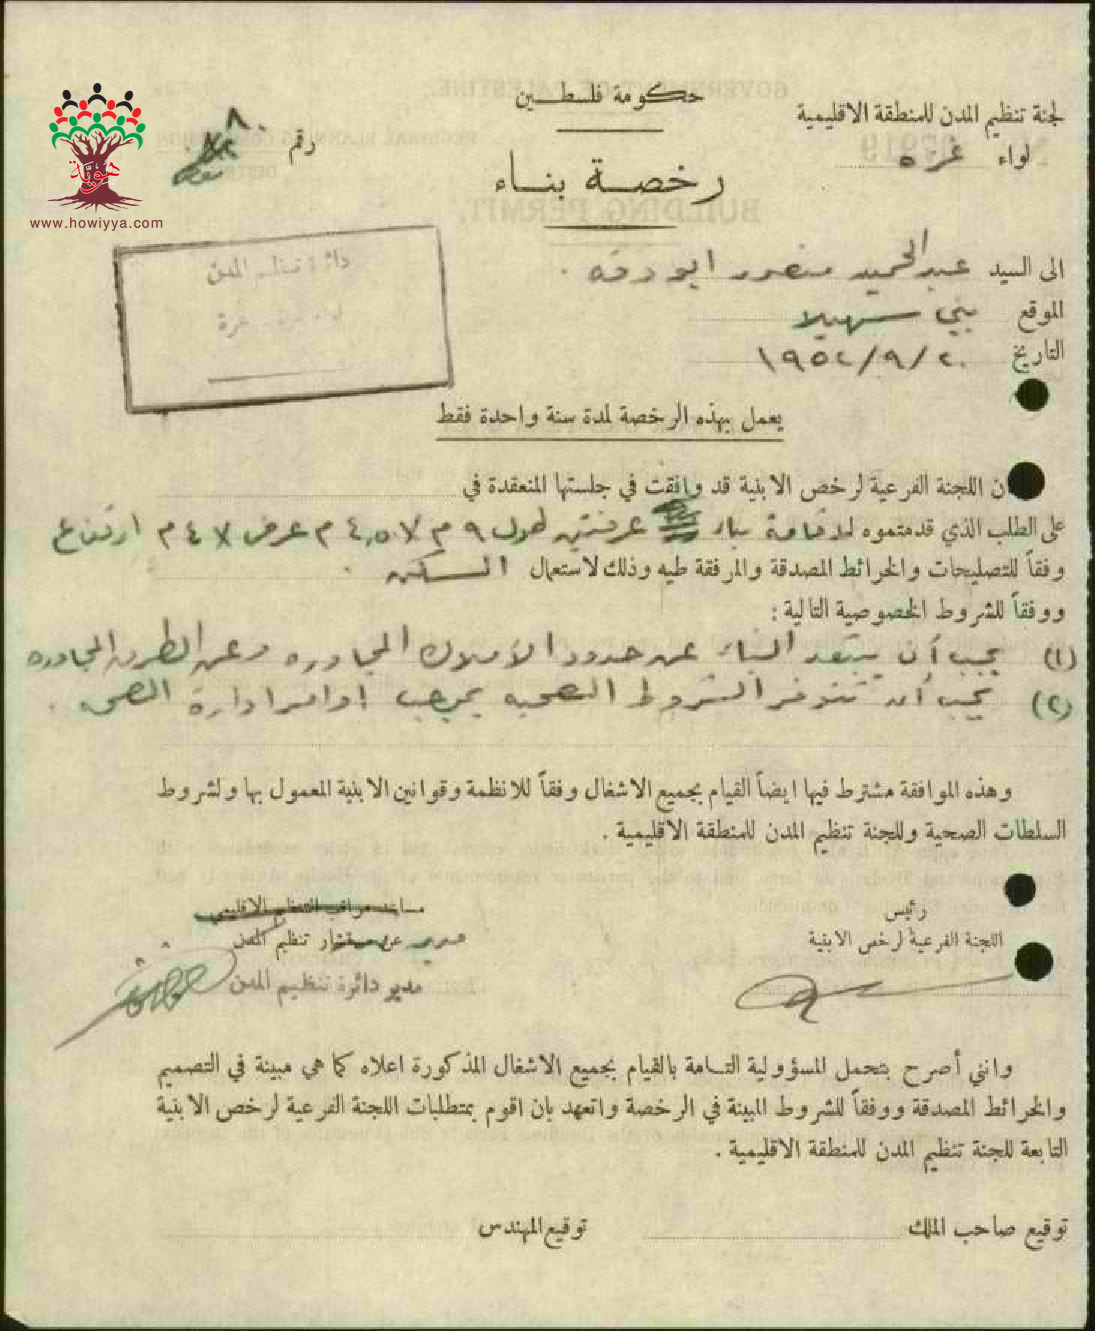 حكومة فلسطين
لجنة تنظيم المدن للمنطقة الاقليمية
لواء غزه
رقم ٨٠
رخصة بناء
هوية
www.howiyya.com
دائرة تنظيم المدن
لواء غزة - غزة
الى السيد عبد الحميد منصور ابو دقه
الموقع بني سهيلا
التاريخ ٢٠/٩/١٩٥٢
يعمل بهذه الرخصة لمدة سنة واحدة فقط
ان اللجنة الفرعية لرخص الابنية قد وافقت في جلستها المنعقدة في
على الطلب الذي قدمتموه لاقامة بناء غرفتين طول ٩ م عرض ٤٧ م ارتفاع
وفقاً للتصليحات والخرائط المصدقة والمرفقة طيه وذلك لاستعمال السكن .
ووفقاً للشروط الخصوصية التالية :
(١) يجب أن يبتعد البناء عن حدود الأملاك المجاوره وعن الطرق المجاوره
(٢) يجب أن تتوفر الشروط الصحيه بموجب اوامر ادارة الصحه .
وهذه الموافقة مشترط فيها ايضاً القيام بجميع الاشغال وفقاً للانظمة وقوانين الابنية المعمول بها ولشروط
السلطات الصحية وللجنة تنظيم المدن للمنطقة الاقليمية .
رئيس
اللجنة الفرعية لرخص الابنية
مساعد مراقب التنظيم الاقليمي
مدير عن مستشار تنظيم المدن
مدير دائرة تنظيم المدن
وانني أصرح بتحمل المسؤولية التامة بالقيام بجميع الاشغال المذكورة اعلاه كما هي مبينة في التصميم
والخرائط المصدقة ووفقاً للشروط المبينة في الرخصة واتعهد بان اقوم بمتطلبات اللجنة الفرعية لرخص الابنية
التابعة للجنة تنظيم المدن للمنطقة الاقليمية .
توقيع صاحب الملك
توقيع المهندس